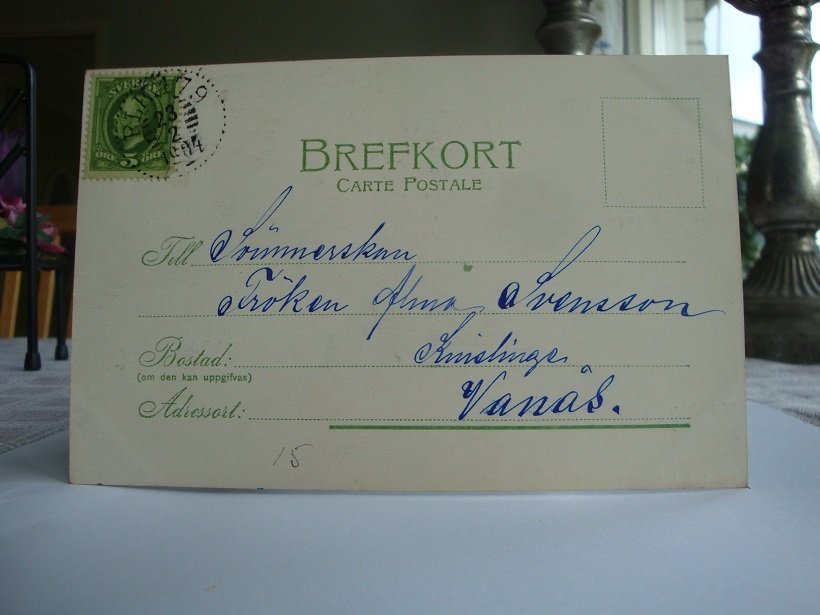 SVERIGE
5
ÖRE ÖRE
PLK 479
23
12
1904
BREFKORT
CARTE POSTALE
Till Sömmerskan
Fröken Alma Svensson
Bostad: Knislinge
(om den kan uppgifvas)
Adressort: Vanås.
15